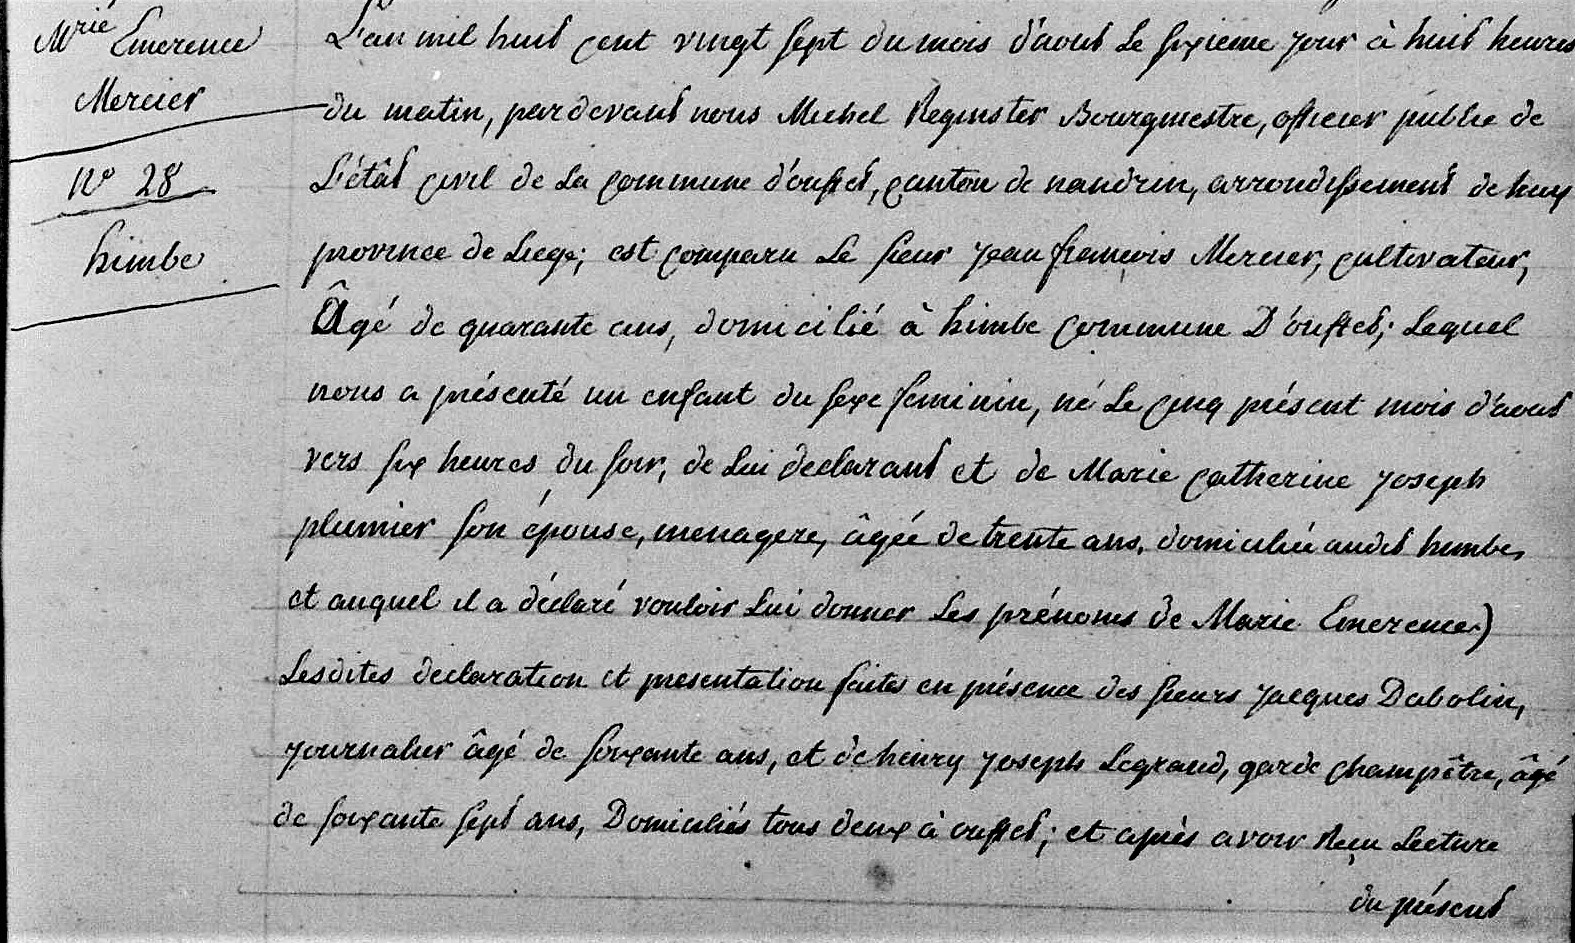 Mrie Emerence
Mercier
No 28
himbe
L'an mil huit cent vingt sept du mois d'aout Le sixieme jour à huit heures
du matin, pardevant nous Michel Reginster Bourgmestre, officier public de
L'étât civil de La commune d'ouffet, canton de nandrin, arrondissement de huy
province de Liege; est comparu Le sieur jean françois Mercier, cultivateur,
Âgé de quarante ans, domicilié à himbe commune D'ouffet; Lequel
nous a présenté un enfant du sexe feminin, né Le cinq présent mois d'aout
vers six heures du soir, de Lui declarant et de Marie catherine joseph
plumier son épouse, menagere, âgée de trente ans, domiciliée audit himbe,
et auquel il a déclaré vouloir Lui donner Les prénoms de Marie Emerence)
Lesdites declaration et presentation faites en présence des sieurs jacques Dabolin,
journalier âgé de soixante ans, et de henry joseph Legrand, garde champêtre, âgé
de soixante sept ans, Domiciliés tous deux à ouffet; et après avoir Reçu Lecture
du présent